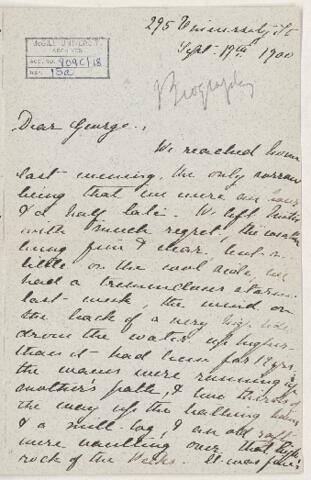 295 University St
Sept. 19th 1900
McGILL UNIVERSITY
ARCHIVES
ACC. NO. 809C/18
REF. 15a
Biography
Dear George,
We reached home
last evening, the only sorrow
being that we were one hour
& a half late. We left
with much regret, the weather
being fine & clear, but a
little on the cool side, we
had a tremendous storm
last week, the wind on
the back of a very high tide
drove the water up higher
than it had been for 19 yrs.
the waves were running up
mother's path, & two thirds of
the way up the bathing
& a mill-log, & an old raft
were vaulting over that high
rock of the . It was fine